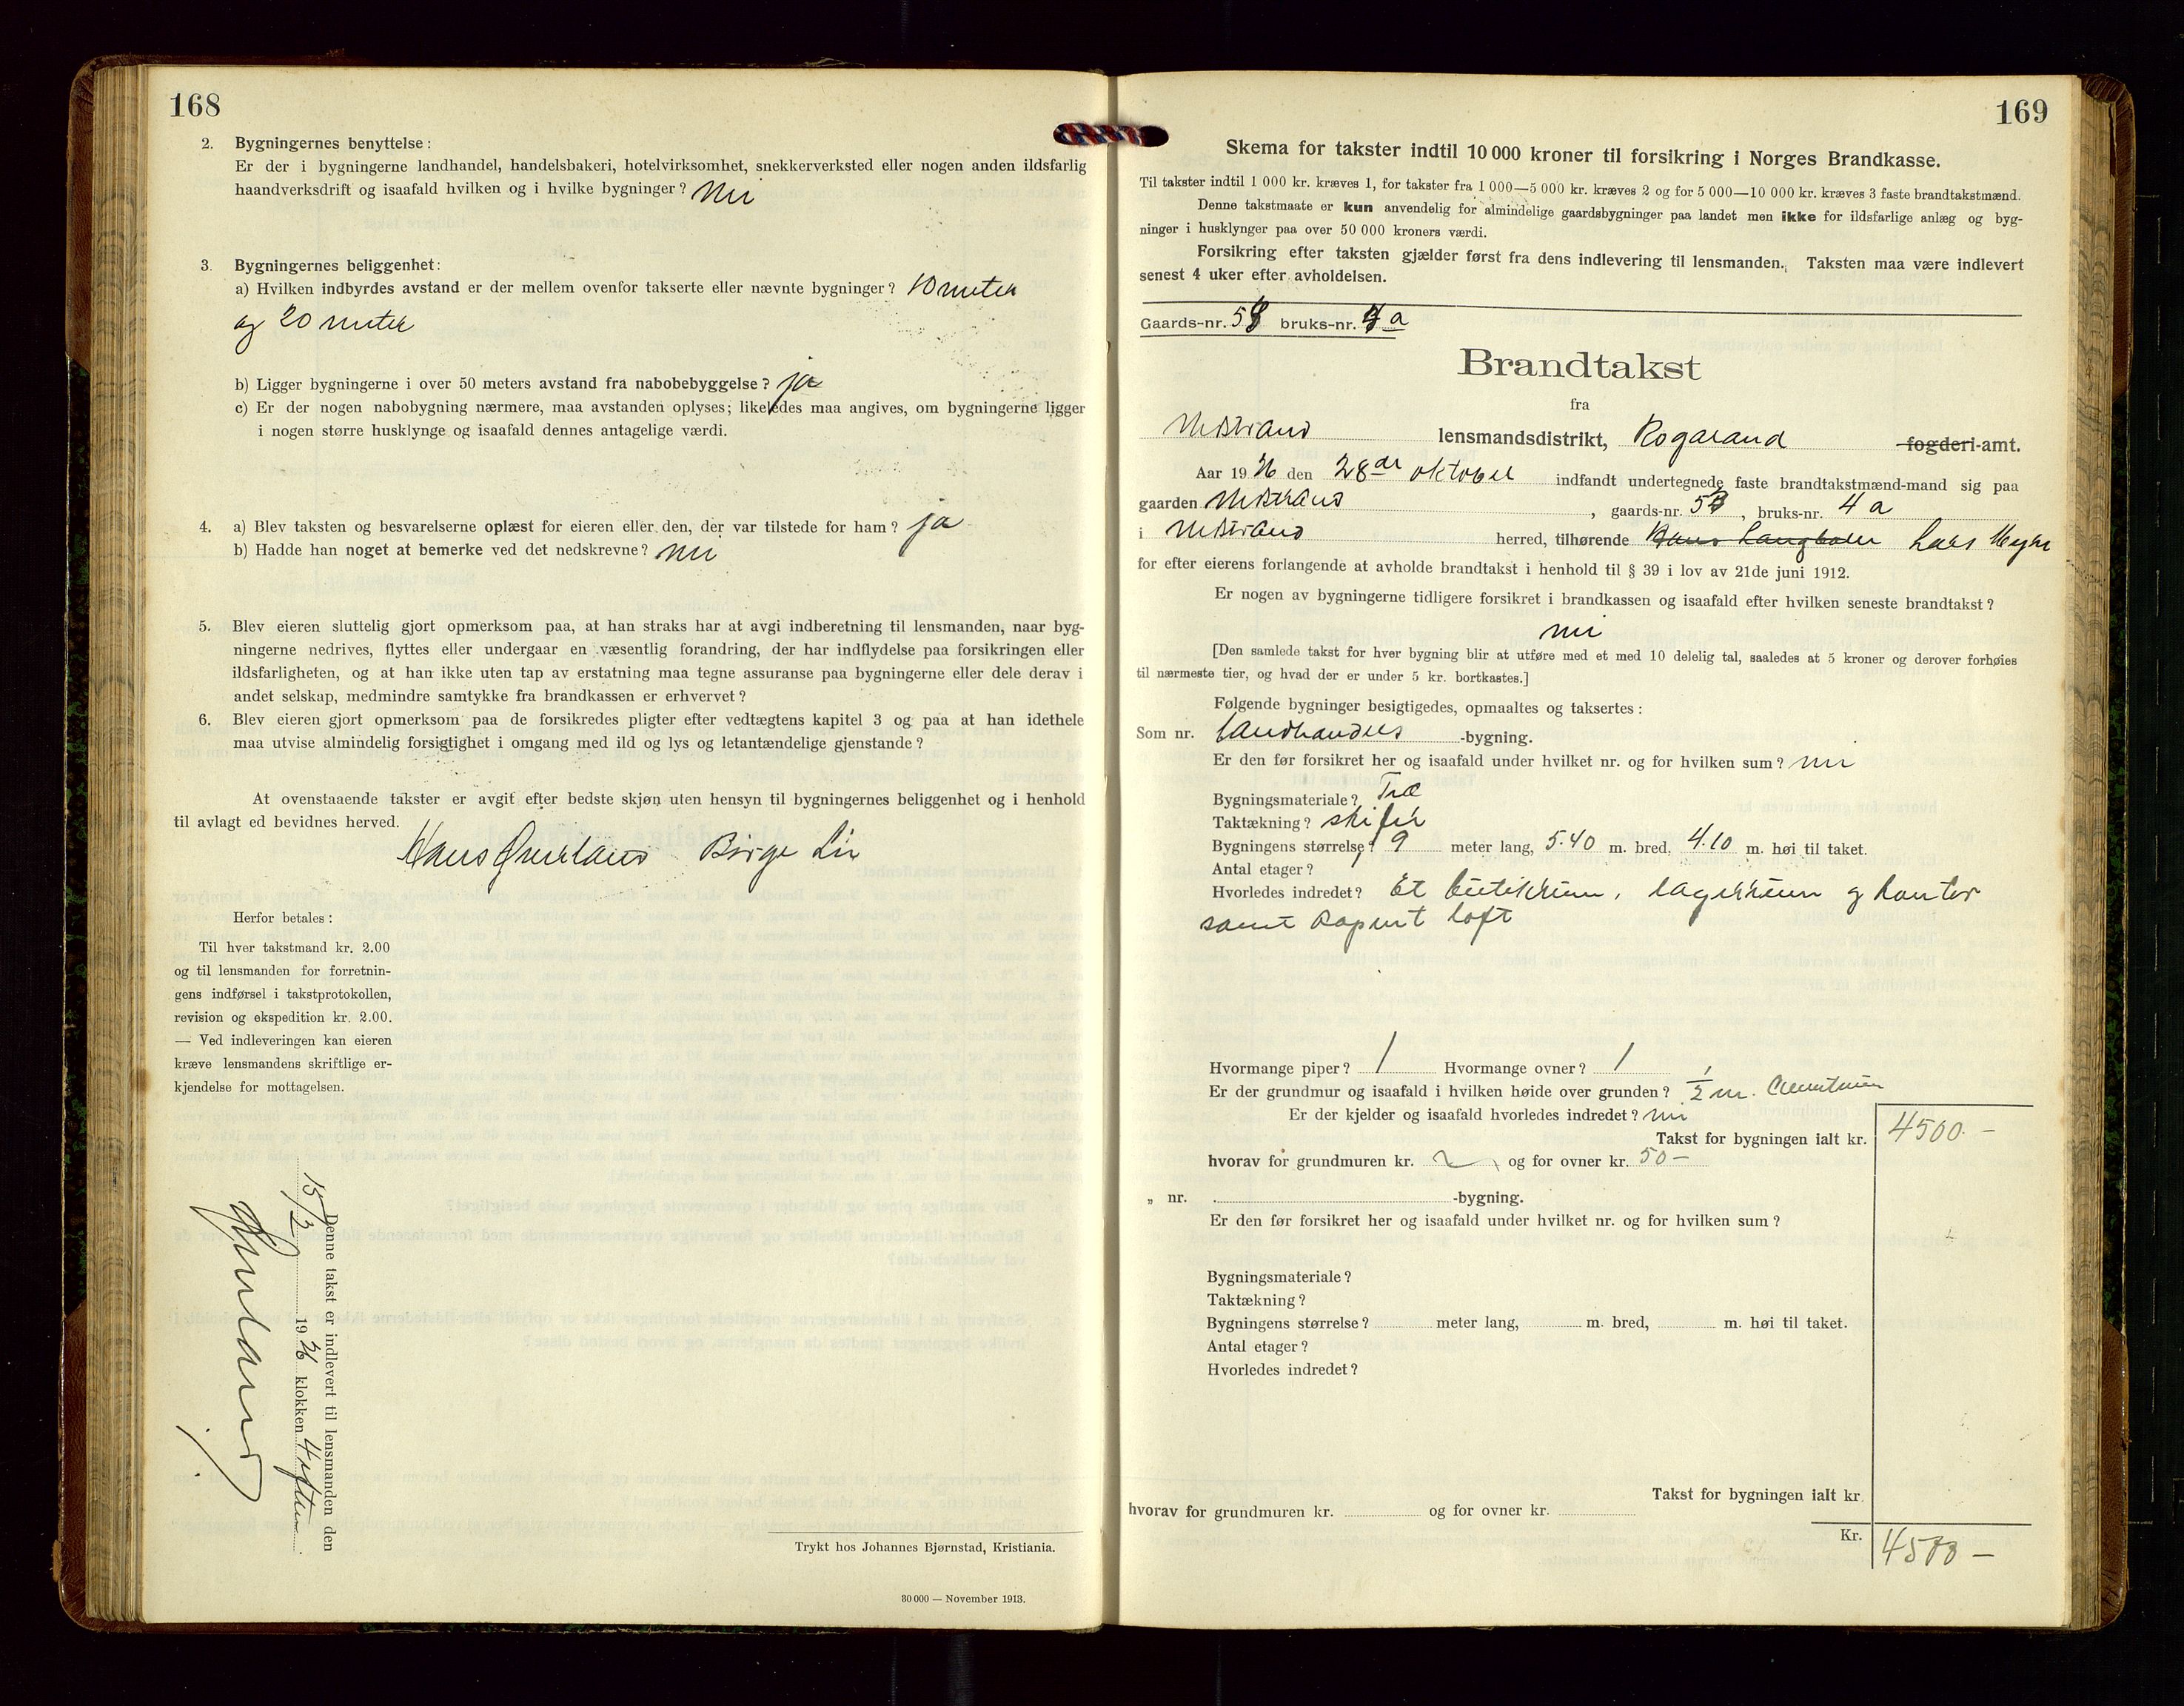 168
2. Bygningernes benyttelse:
Er der i bygningerne landhandel, handelsbakeri, hotelvirksomhet, snekkerverksted eller nogen anden ildsfarlig
haandverksdrift og isaafald hvilken og i hvilke bygninger? nei
3. Bygningernes beliggenhet:
a) Hvilken indbyrdes avstand er der mellem ovenfor takserte eller nævnte bygninger? 10 meter
og 20 meter
b) Ligger bygningerne i over 50 meters avstand fra nabobebyggelse? ja
c) Er der nogen nabobygning nærmere, maa avstanden oplyses; likeledes maa angives, om bygningerne ligger
i nogen større husklynge og isaafald dennes antagelige værdi.
4. a) Blev taksten og besvarelserne oplæst for eieren eller den, der var tilstede for ham? ja
b) Hadde han noget at bemerke ved det nedskrevne? nei
5. Blev eieren sluttelig gjort opmerksom paa, at han straks har at avgi indberetning til lensmanden, naar byg-
ningerne nedrives, flyttes eller undergaar en væsentlig forandring, der har indflydelse paa forsikringen eller
ildsfarligheten, og at han ikke uten tap av erstatning maa tegne assuranse paa bygningerne eller dele derav i
andet selskap, medmindre samtykke fra brandkassen er erhvervet?
6. Blev eieren gjort opmerksom paa de forsikredes pligter efter vedtægtens kapitel 3 og paa at han idethele
maa utvise almindelig forsigtighet i omgang med ild og lys og letantændelige gjenstande?
At ovenstaaende takster er avgit efter bedste skjøn uten hensyn til bygningernes beliggenhet og i henhold
til avlagt ed bevidnes herved.
Hans Overland Børge Lie
Herfor betales:
Til hver takstmand kr. 2.00
og til lensmanden for forretnin-
gens indførsel i takstprotokollen,
revision og ekspedition kr. 2.00.
— Ved indleveringen kan eieren
kræve lensmandens skriftlige er-
kjendelse for mottagelsen.
Denne takst er indlevert til lensmanden den
15/3 1926 klokken 4 eftm.
Trykt hos Johannes Bjørnstad, Kristiania.
30 000 — November 1913.
169
Skema for takster indtil 10 000 kroner til forsikring i Norges Brandkasse.
Til takster indtil 1 000 kr. kræves 1, for takster fra 1 000—5 000 kr. kræves 2 og for 5 000—10 000 kr. kræves 3 faste brandtakstmænd.
Denne takstmaate er kun anvendelig for almindelige gaardsbygninger paa landet men ikke for ildsfarlige anlæg og byg-
ninger i husklynger paa over 50 000 kroners værdi.
Forsikring efter taksten gjælder først fra dens indlevering til lensmanden. Taksten maa være indlevert
senest 4 uker efter avholdelsen.
Gaards-nr. 58 bruks-nr. 4 a
Brandtakst
fra
Mosterand lensmandsdistrikt, Rogaland fogderi-amt.
Aar 1926 den 28de oktober indfandt undertegnede faste brandtakstmænd-mand sig paa
gaarden Mosterand, gaards-nr. 58, bruks-nr. 4 a
i Mosterand herred, tilhørende Lars Meyer
for efter eierens forlangende at avholde brandtakst i henhold til § 39 i lov av 21de juni 1912.
Er nogen av bygningerne tidligere forsikret i brandkassen og isaafald efter hvilken seneste brandtakst?
nei
[Den samlede takst for hver bygning blir at utføre med et med 10 delelig tal, saaledes at 5 kroner og derover forhøies
til nærmeste tier, og hvad der er under 5 kr. bortkastes.]
Følgende bygninger besigtigedes, opmaaltes og taksertes:
Som nr. landhandels -bygning.
Er den før forsikret her og isaafald under hvilket nr. og for hvilken sum? nei
Bygningsmateriale? Træ
Taktækning? skifer
Bygningens størrelse? 9 meter lang, 5.40 m. bred, 4.10 m. høi til taket.
Antal etager? 1
Hvorledes indredet? Et butikrum, lagerrum og kontor
samt Rapert loft
Hvormange piper? 1 Hvormange ovner? 1
Er der grundmur og isaafald i hvilken høide over grunden? 1/2 m. Cementmur
Er der kjelder og isaafald hvorledes indredet? nei
Takst for bygningen ialt kr. 4500.-
hvorav for grundmuren kr. og for ovner kr. 50-
„ nr. -bygning.
Er den før forsikret her og isaafald under hvilket nr. og for hvilken sum?
Bygningsmateriale?
Taktækning?
Bygningens størrelse? meter lang, m. bred, m. høi til taket.
Antal etager?
Hvorledes indredet?
Takst for bygningen ialt kr.
hvorav for grundmuren kr. og for ovner kr.
Kr. 4500-